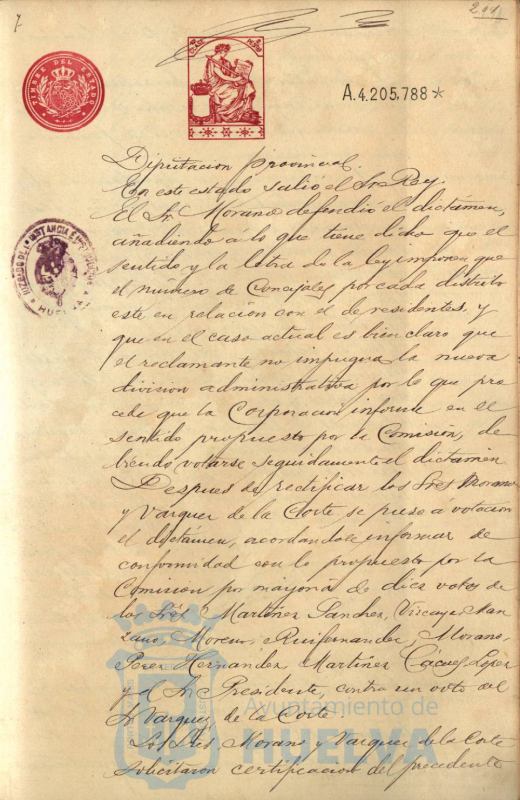 7
211
TIMBRE DEL ESTADO
CLASE
PESOS
A.4.205,788*
JUZGADO DE 1ª INSTANCIA E INSTRUCCION
HUELVA
Diputacion Provincial.
En este estado salió el Sr Rey.
El Sr Morano defendió el dictámen,
añadiendo á lo que tiene dicho que el
sentido y la letra de la ley imponen que
el numero de Concejales por cada distrito
esté en relación con el de residentes, y
que en el caso actual es bien claro que
el reclamante no impugna la nueva
division administrativa por lo que pro
cede que la Corporacion informe en el
sentido propuesto por la Comisión, de
biendo votarse seguidamente el dictámen
Despues de rectificar los Sres Morano
y Vazquez de la Corte se puso á votacion
el dictámen, acordandose informar de
conformidad con lo propuesto por la
Comision por mayoria de diez votos de
los Sres Martinez Sanchez, Vizcaya Man
zano, Moreno, Ruifernandez, Morano,
Perez Hernandez, Martinez Cáceres, Lopez
y el Sr Presidente, contra un voto del
Sr Vazquez de la Corte.
Los Sres Morano y Vazquez de la Corte
solicitaron certificacion del precedente
Ayuntamiento de
HUELVA